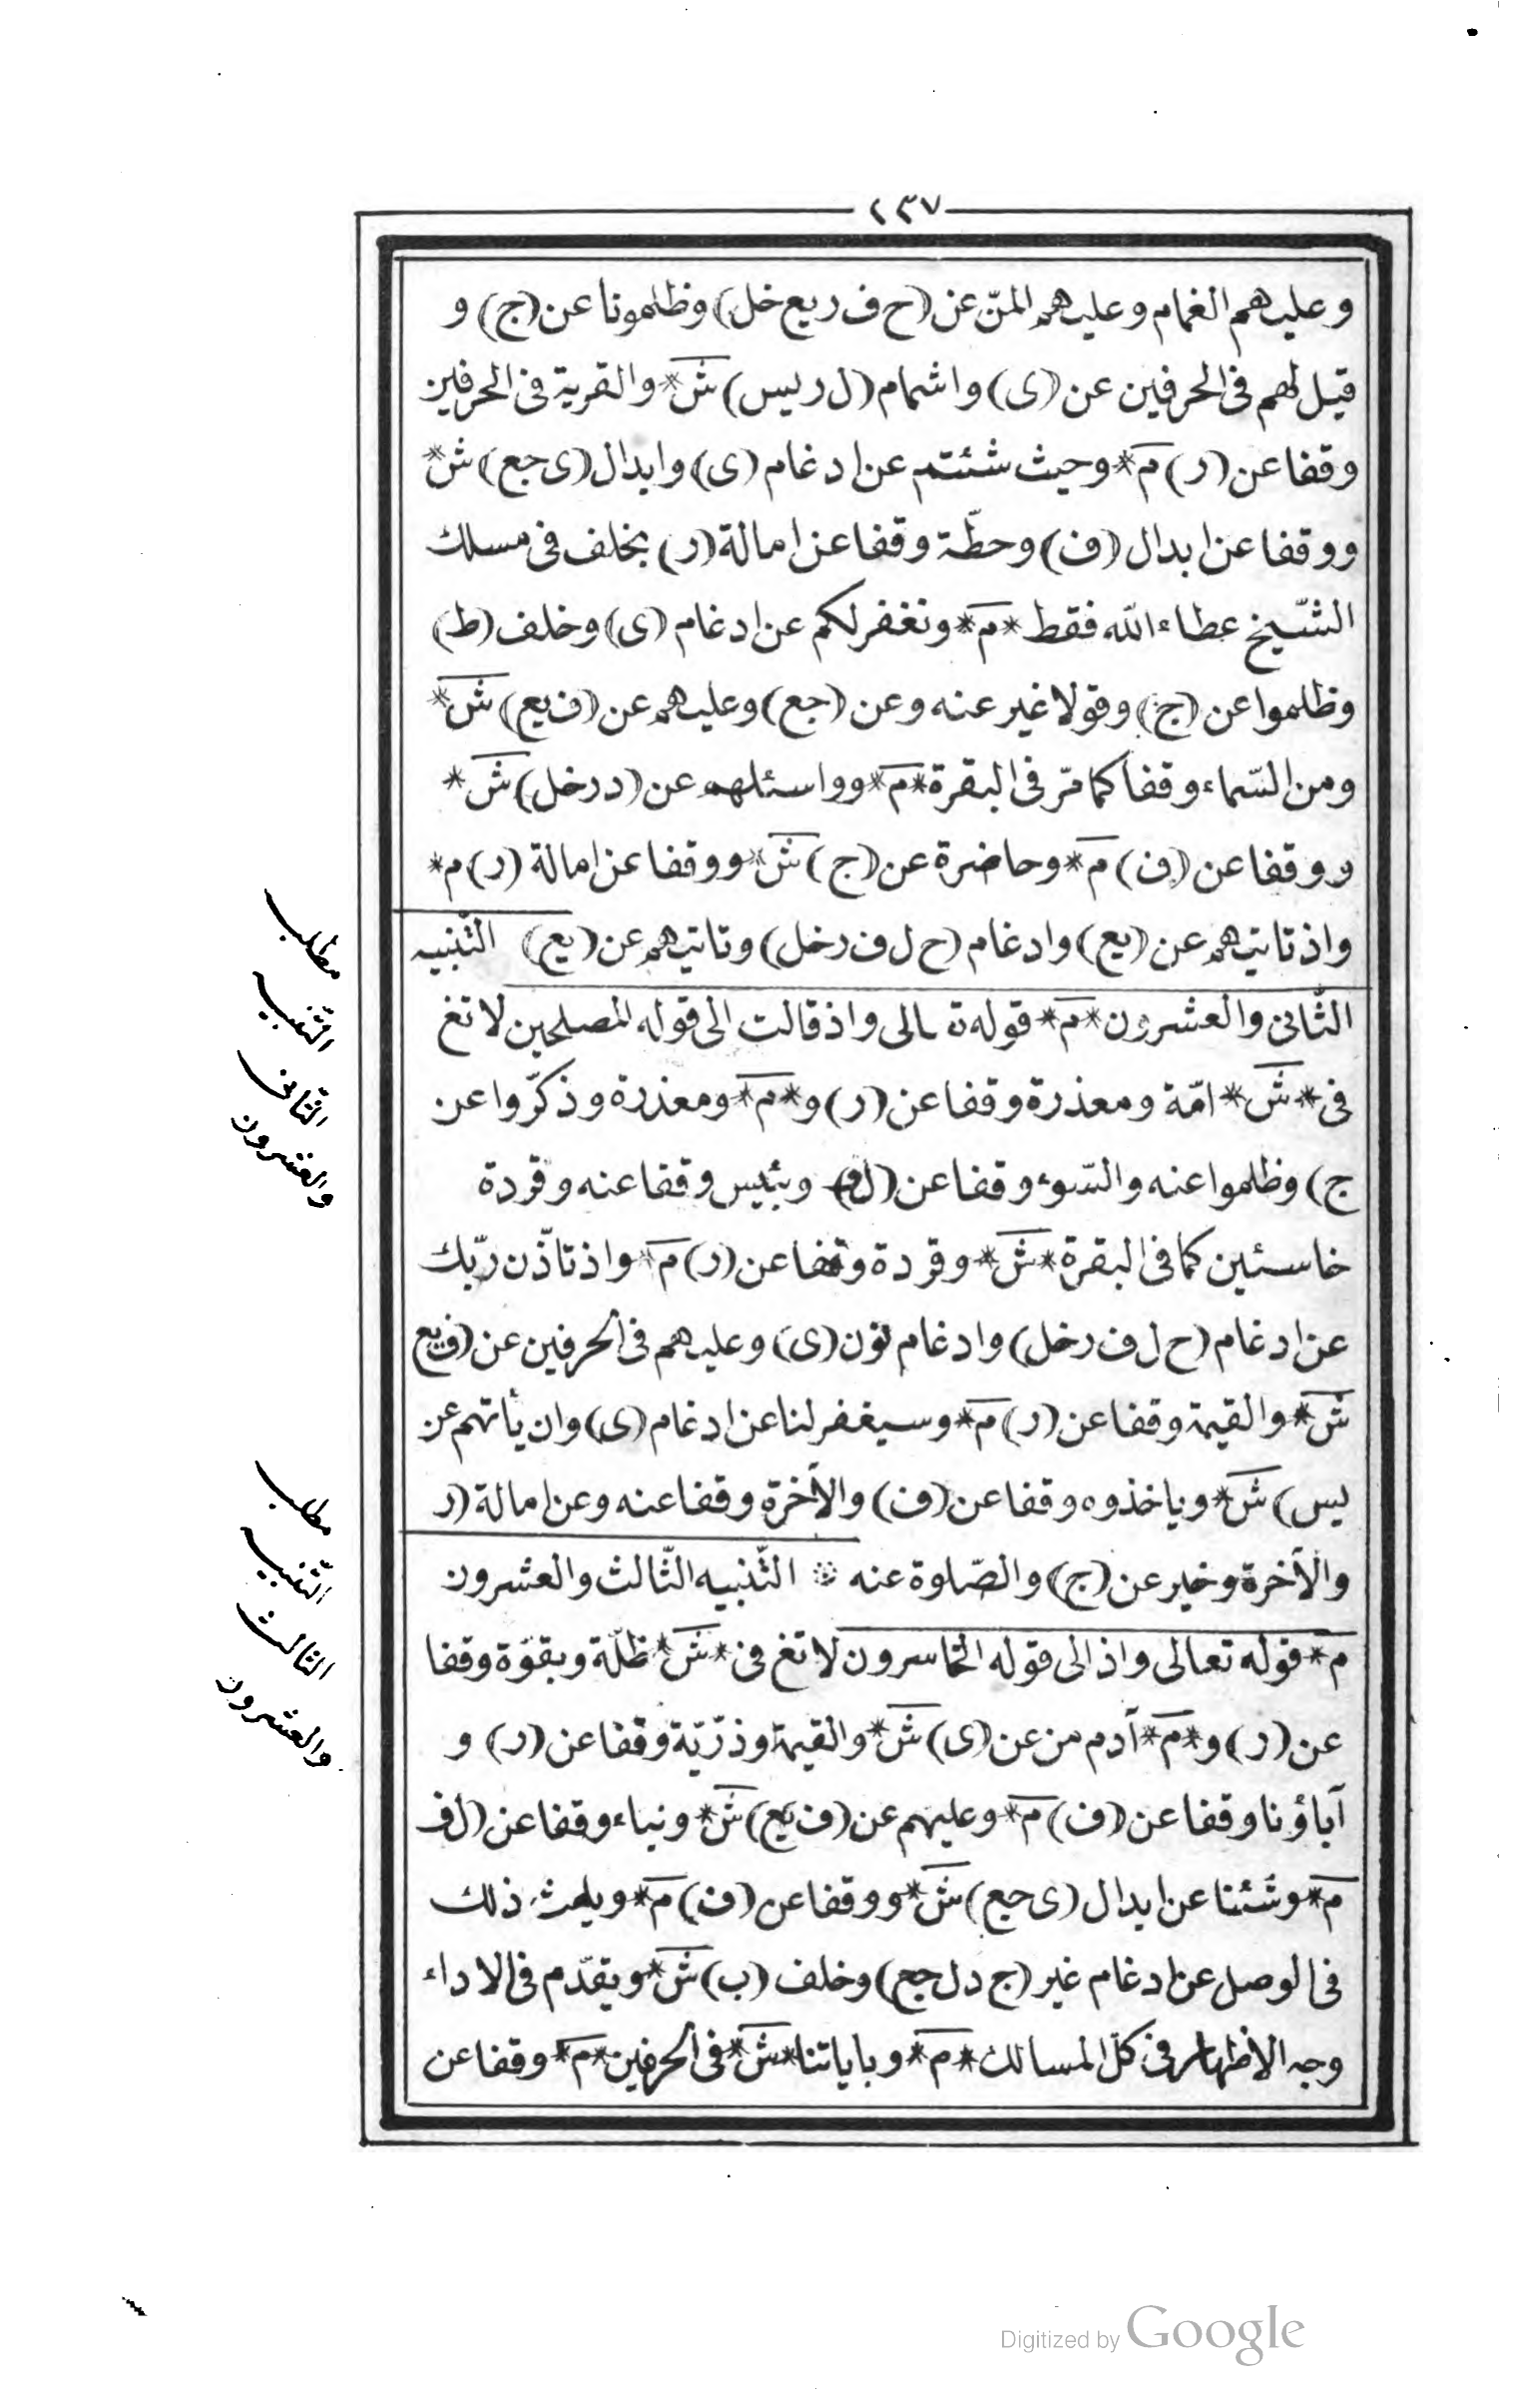 ٢٣٧
وعليهم الغمام وعليهم المنّ عن (ح ف ريع خل) وظلمونا عن (ج) و
قيل لهم فى الحرفين عن (ى) واشمام (ل ر يس) ش* والقرية فى الحرفين
وقفا عن (ر) م* وحيث شئتم عن ادغام (ى) وابدال (ى جع) ش*
ووقفا عن ابدال (ف) وحطّة وقفا عن امالة (ر) بخلف فى مسلك
الشّيخ عطاء الله فقط *م* ونغفر لكم عن ادغام (ى) وخلف (ط)
وظلموا عن (ج) وقولا غير عنه وعن (جع) وعليهم عن (ف يع) ش*
ومن السّماء وقفا كما مّر فى البقرة *م* وواسئلهم عن (د ر خل) ش*
ووقفا عن (ف) م* وحاضرة عن (ج) ش* ووقفا عن امالة (ر) م*
واذ تاتيهم عن (يع) وادغام (ح ل ف ر خل) وتاتيهم عن (يع) التّنبيه
الثّانى والعشرون *م* قوله تعالى واذ قالت الى قوله المصلحين لا تغ
فى *ش* امّة ومعذرة وقفا عن (ر) و *م* ومعذرة وذكّروا عن
ج) وظلموا عنه والسّوء وقفا عن (ل ف) وبئيس وقفا عنه وقردة
خاسئين كما فى البقرة *ش* وقردة وقفا عن (ر) م* واذ تاذّن ربّك
عن ادغام (ح ل ف ر خل) وادغام نون (ى) وعليهم فى الحرفين عن (ف يع
ش* والقيمة وقفا عن (ر) م* وسيغفر لنا عن ادغام (ى) وان يأتهم عن
يس) ش* وياخذوه وقفا عن (ف) والآخرة وقفا عنه وعن امالة (ر
والآخرة وخير عن (ج) والصّلوة عنه ※ التّنبيه الثّالث والعشرون
م* قوله تعالى واذ الى قوله الخاسرون لا تغ فى *ش* ظلّة وبقوّة وقفا
عن (ر) و *م* آدم من عن (ى) ش* والقيمة وذرّيّة وقفا عن (ر) و
آباؤنا وقفا عن (ف) م* وعليهم عن (ف يع) ش* ونباء وقفا عن (ل ف
م* وشئنا عن ابدال (ى جع) ش* ووقفا عن (ف) م* ويلهث ذلك
فى الوصل عن ادغام غير (ج د ل جع) وخلف (ب) ش* ويقدّم فى الاداء
وجه الاظهار فى كلّ المسالك *م* وباياتنا *ش* فى الحرفين *م* وقفا عن
مطلب
التّنبيه
الثّانى
والعشرون
مطلب
التّنبيه
الثالث
والعشرون
Digitized by Google